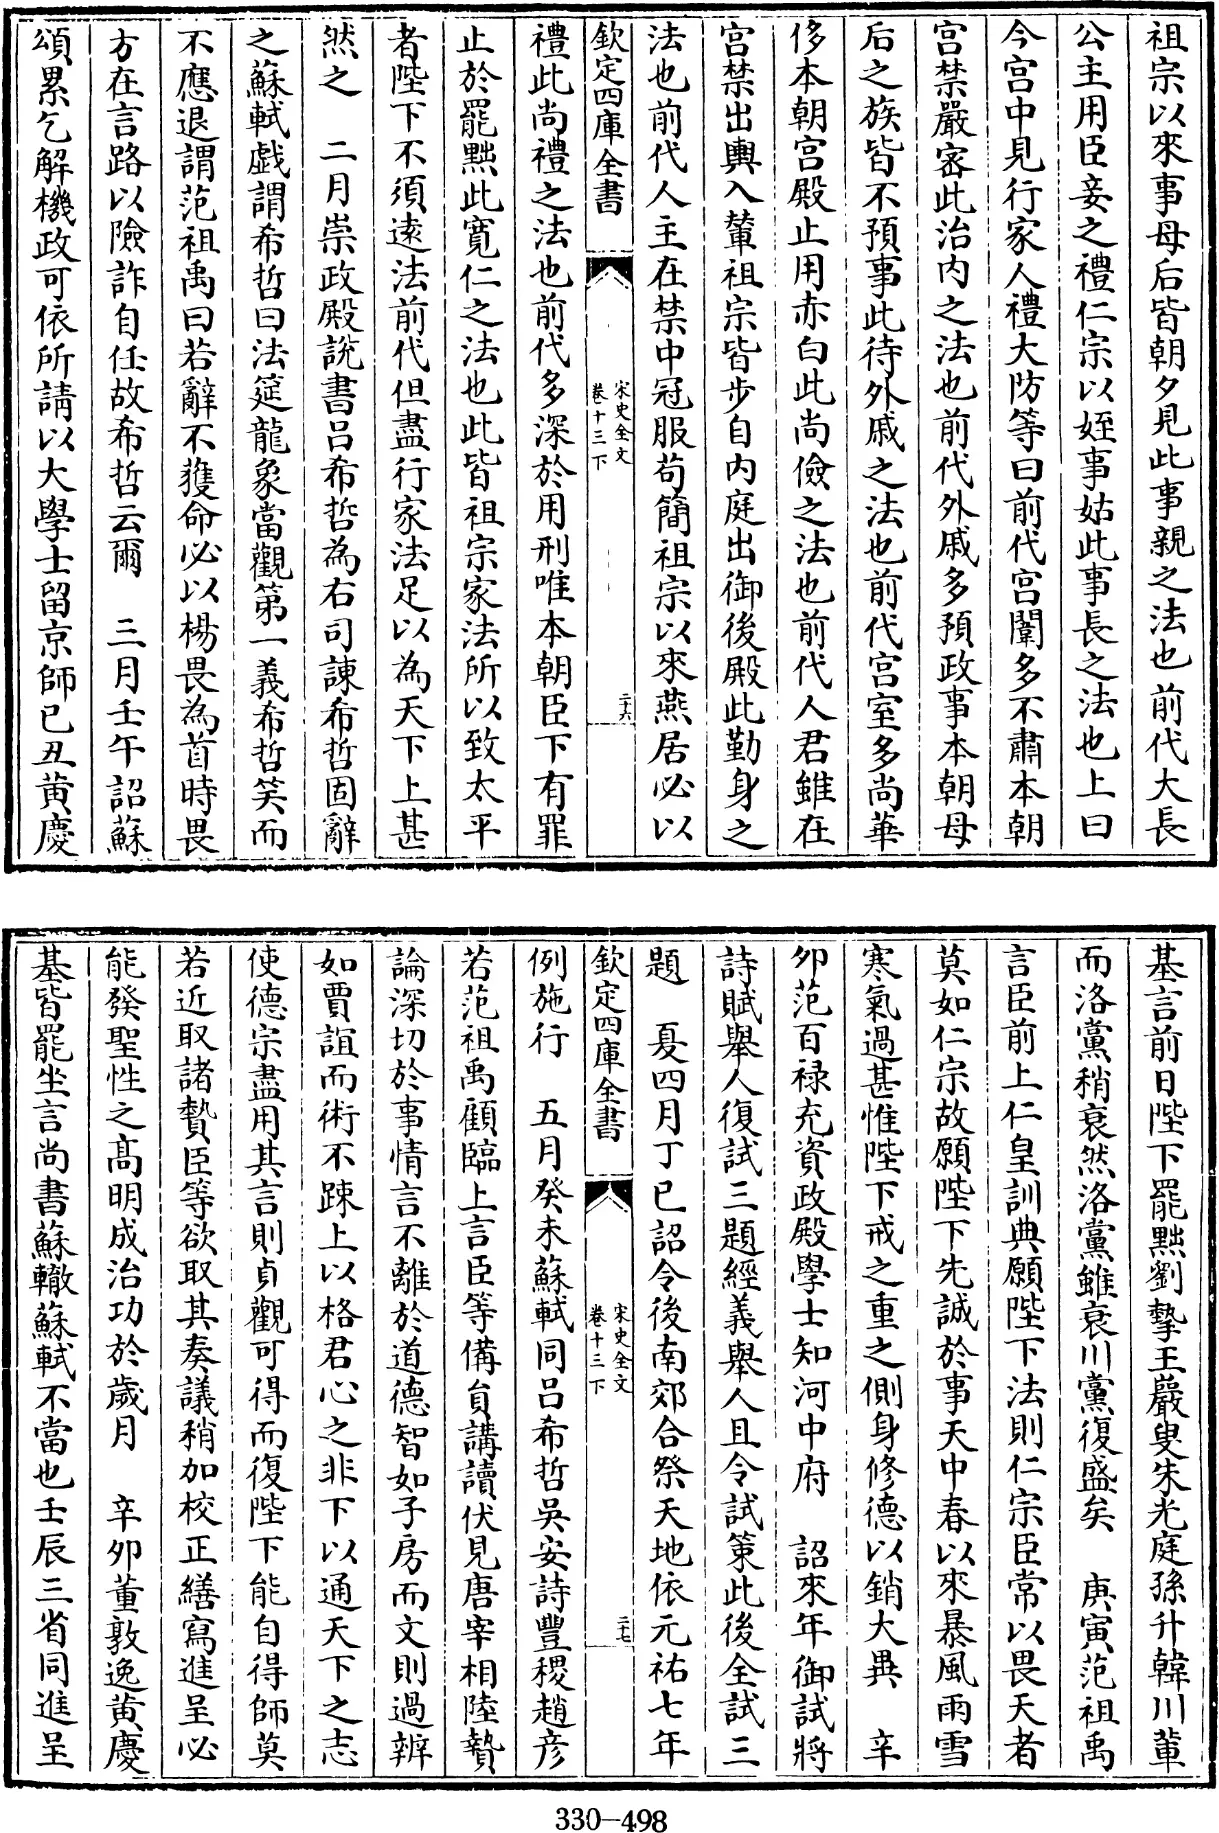 祖宗以來事母后皆朝夕見此事親之法也前代大長
公主用臣妾之禮仁宗以姪事姑此事長之法也上曰
今宫中見行家人禮大防等曰前代宫闈多不肅本朝
宫禁嚴宻此治内之法也前代外戚多預政事本朝母
后之族皆不預事此待外戚之法也前代宫室多尚華
侈本朝宫殿止用赤白此尚儉之法也前代人君雖在
宫禁出輿入輦祖宗皆步自内庭出御後殿此勤身之
法也前代人主在禁中冠服苟簡祖宗以來燕居必以
欽定四庫全書
宋史全文
卷十三下
二十六
禮此尚禮之法也前代多深於用刑唯本朝臣下有罪
止於罷黜此寛仁之法也此皆祖宗家法所以致太平
者陛下不須逺法前代但盡行家法足以為天下上甚
然之 二月崇政殿説書吕希哲為右司諫希哲固辭
之蘇軾戲謂希哲曰法筵龍象當觀第一義希哲笑而
不應退謂范祖禹曰若辭不獲命必以楊畏為首時畏
方在言路以險詐自任故希哲云爾 三月壬午詔蘇
頌累乞解機政可依所請以大學士留京師己丑黄慶
基言前日陛下罷黜劉摯王巖叟朱光庭孫升韓川輩
而洛黨稍衰然洛黨雖衰川黨復盛矣 庚寅范祖禹
言臣前上仁皇訓典願陛下法則仁宗臣常以畏天者
莫如仁宗故願陛下先誠於事天中春以來暴風雨雪
寒氣過甚惟陛下戒之重之側身修德以銷大異 辛
夘范百禄充資政殿學士知河中府 詔來年御試將
詩賦舉人復試三題經義舉人且令試策此後全試三
題 夏四月丁巳詔令後南郊合祭天地依元祐七年
欽定四庫全書
宋史全文
卷十三下
二十七
例施行 五月癸未蘇軾同吕希哲吳安詩豐稷趙彦
若范祖禹顧臨上言臣等備員講讀伏見唐宰相陸贄
論深切於事情言不離於道德智如子房而文則過辨
如賈誼而術不踈上以格君心之非下以通天下之志
使德宗盡用其言則貞觀可得而復陛下能自得師莫
若近取諸贄臣等欲取其奏議稍加校正繕寫進呈必
能發聖性之髙明成治功於歲月 辛夘董敦逸黄慶
基皆罷坐言尚書蘇轍蘇軾不當也壬辰三省同進呈
330-498